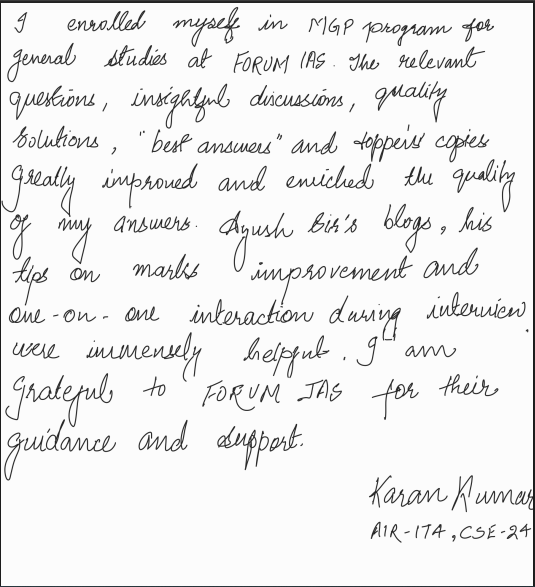 I enrolled myself in MGP program for
general studies at FORUM IAS. The relevant
questions, insightful discussions, quality
Solutions, "best answers" and topper's copies
greatly improved and enriched the quality
of my answers. Ayush Sir's blogs, his
tips on marks improvement and
one-on-one interaction during interview
were immensely helpful. I am
grateful to FORUM IAS for their
guidance and support.
Karan Kumar
AIR-174, CSE-24